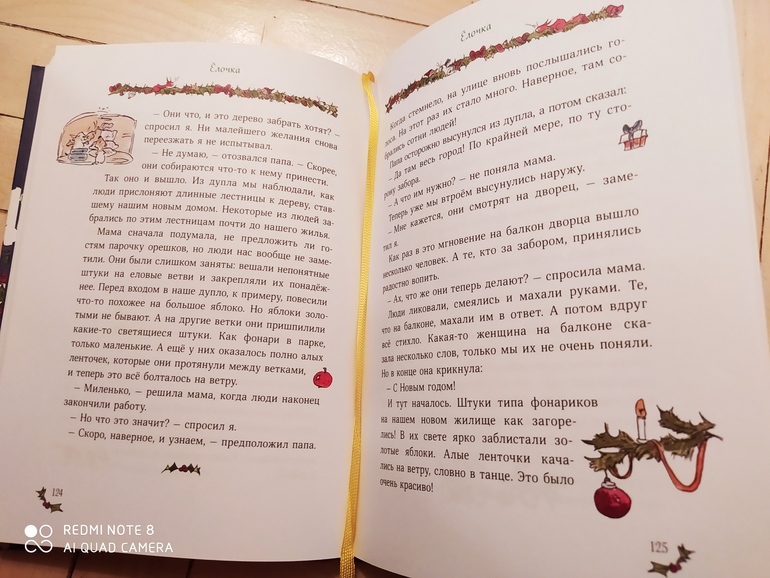 Ёлочка
– Они что, и это дерево забрать хотят? –
спросил я. Ни малейшего желания снова
переезжать я не испытывал.
– Не думаю, – отозвался папа. – Скорее,
они собираются что-то к нему принести.
Так оно и вышло. Из дупла мы наблюдали, как
люди прислоняют длинные лестницы к дереву, став-
шему нашим новым домом. Некоторые из людей за-
брались по этим лестницам почти до нашего жилья.
Мама сначала подумала, не предложить ли го-
стям парочку орешков, но люди нас вообще не заме-
тили. Они были слишком заняты: вешали непонятные
штуки на еловые ветви и закрепляли их понадёж-
нее. Перед входом в наше дупло, к примеру, повесили
что-то похожее на большое яблоко. Но яблоки золо-
тыми не бывают. А на другие ветки они пришпилили
какие-то светящиеся штуки. Как фонари в парке,
только маленькие. А ещё у них оказалось полно алых
ленточек, которые они протянули между ветками,
и теперь это всё болталось на ветру.
– Миленько, – решила мама, когда люди наконец
закончили работу.
– Но что это значит? – спросил я.
– Скоро, наверное, и узнаем, – предположил папа.
124
Ёлочка
Когда стемнело, на улице вновь послышались го-
лоса. На этот раз их стало много. Наверное, там со-
брались сотни людей!
Папа осторожно высунулся из дупла, а потом сказал:
– Да там весь город! По крайней мере, по ту сто-
рону забора.
– А что им нужно? – не поняла мама.
Теперь уже мы втроём высунулись наружу.
– Мне кажется, они смотрят на дворец, – заме-
тил я.
Как раз в это мгновение на балкон дворца вышло
несколько человек. А те, кто за забором, принялись
радостно вопить.
– Ах, что же они теперь делают? – спросила мама.
Люди ликовали, смеялись и махали руками. Те,
что на балконе, махали им в ответ. А потом вдруг
всё стихло. Какая-то женщина на балконе ска-
зала несколько слов, только мы их не очень поняли.
Но в конце она крикнула:
– С Новым годом!
И тут началось. Штуки типа фонариков
на нашем новом жилище как загоре-
лись! В их свете ярко заблистали зо-
лотые яблоки. Алые ленточки кача-
лись на ветру, словно в танце. Это было
очень красиво!
125
REDMI NOTE 8
AI QUAD CAMERA